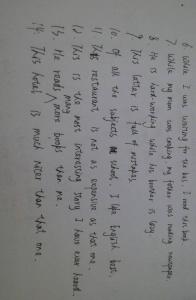 6. While I was waiting for the bus, I read this book
7. While my mom was cooking, my father was reading newspaper.
8. He is hard-working while his brother is lazy.
9. This letter is full of mistakes.
10. Of all the subjects at school, I like English best.
11. This restaurant is not as expensive as that one.
12. This is the most interesting story I have ever heard.
13. He reads many more books than me.
14. This hotel is much nicer than that one.